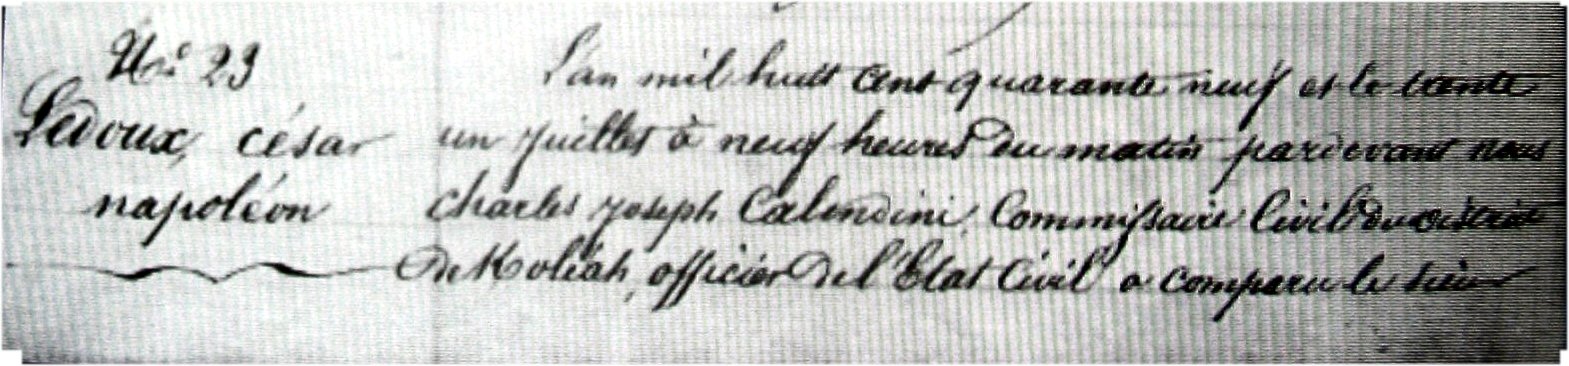 No 23
Ledoux, césar
napoléon
L'an mil huit cent quarante neuf et le trente
un Juillet à neuf heures du matin pardevant nous
Charles Joseph Calendini, Commissaire Civil du district
de Koléah, officier de l'Etat Civil a comparu le sieur